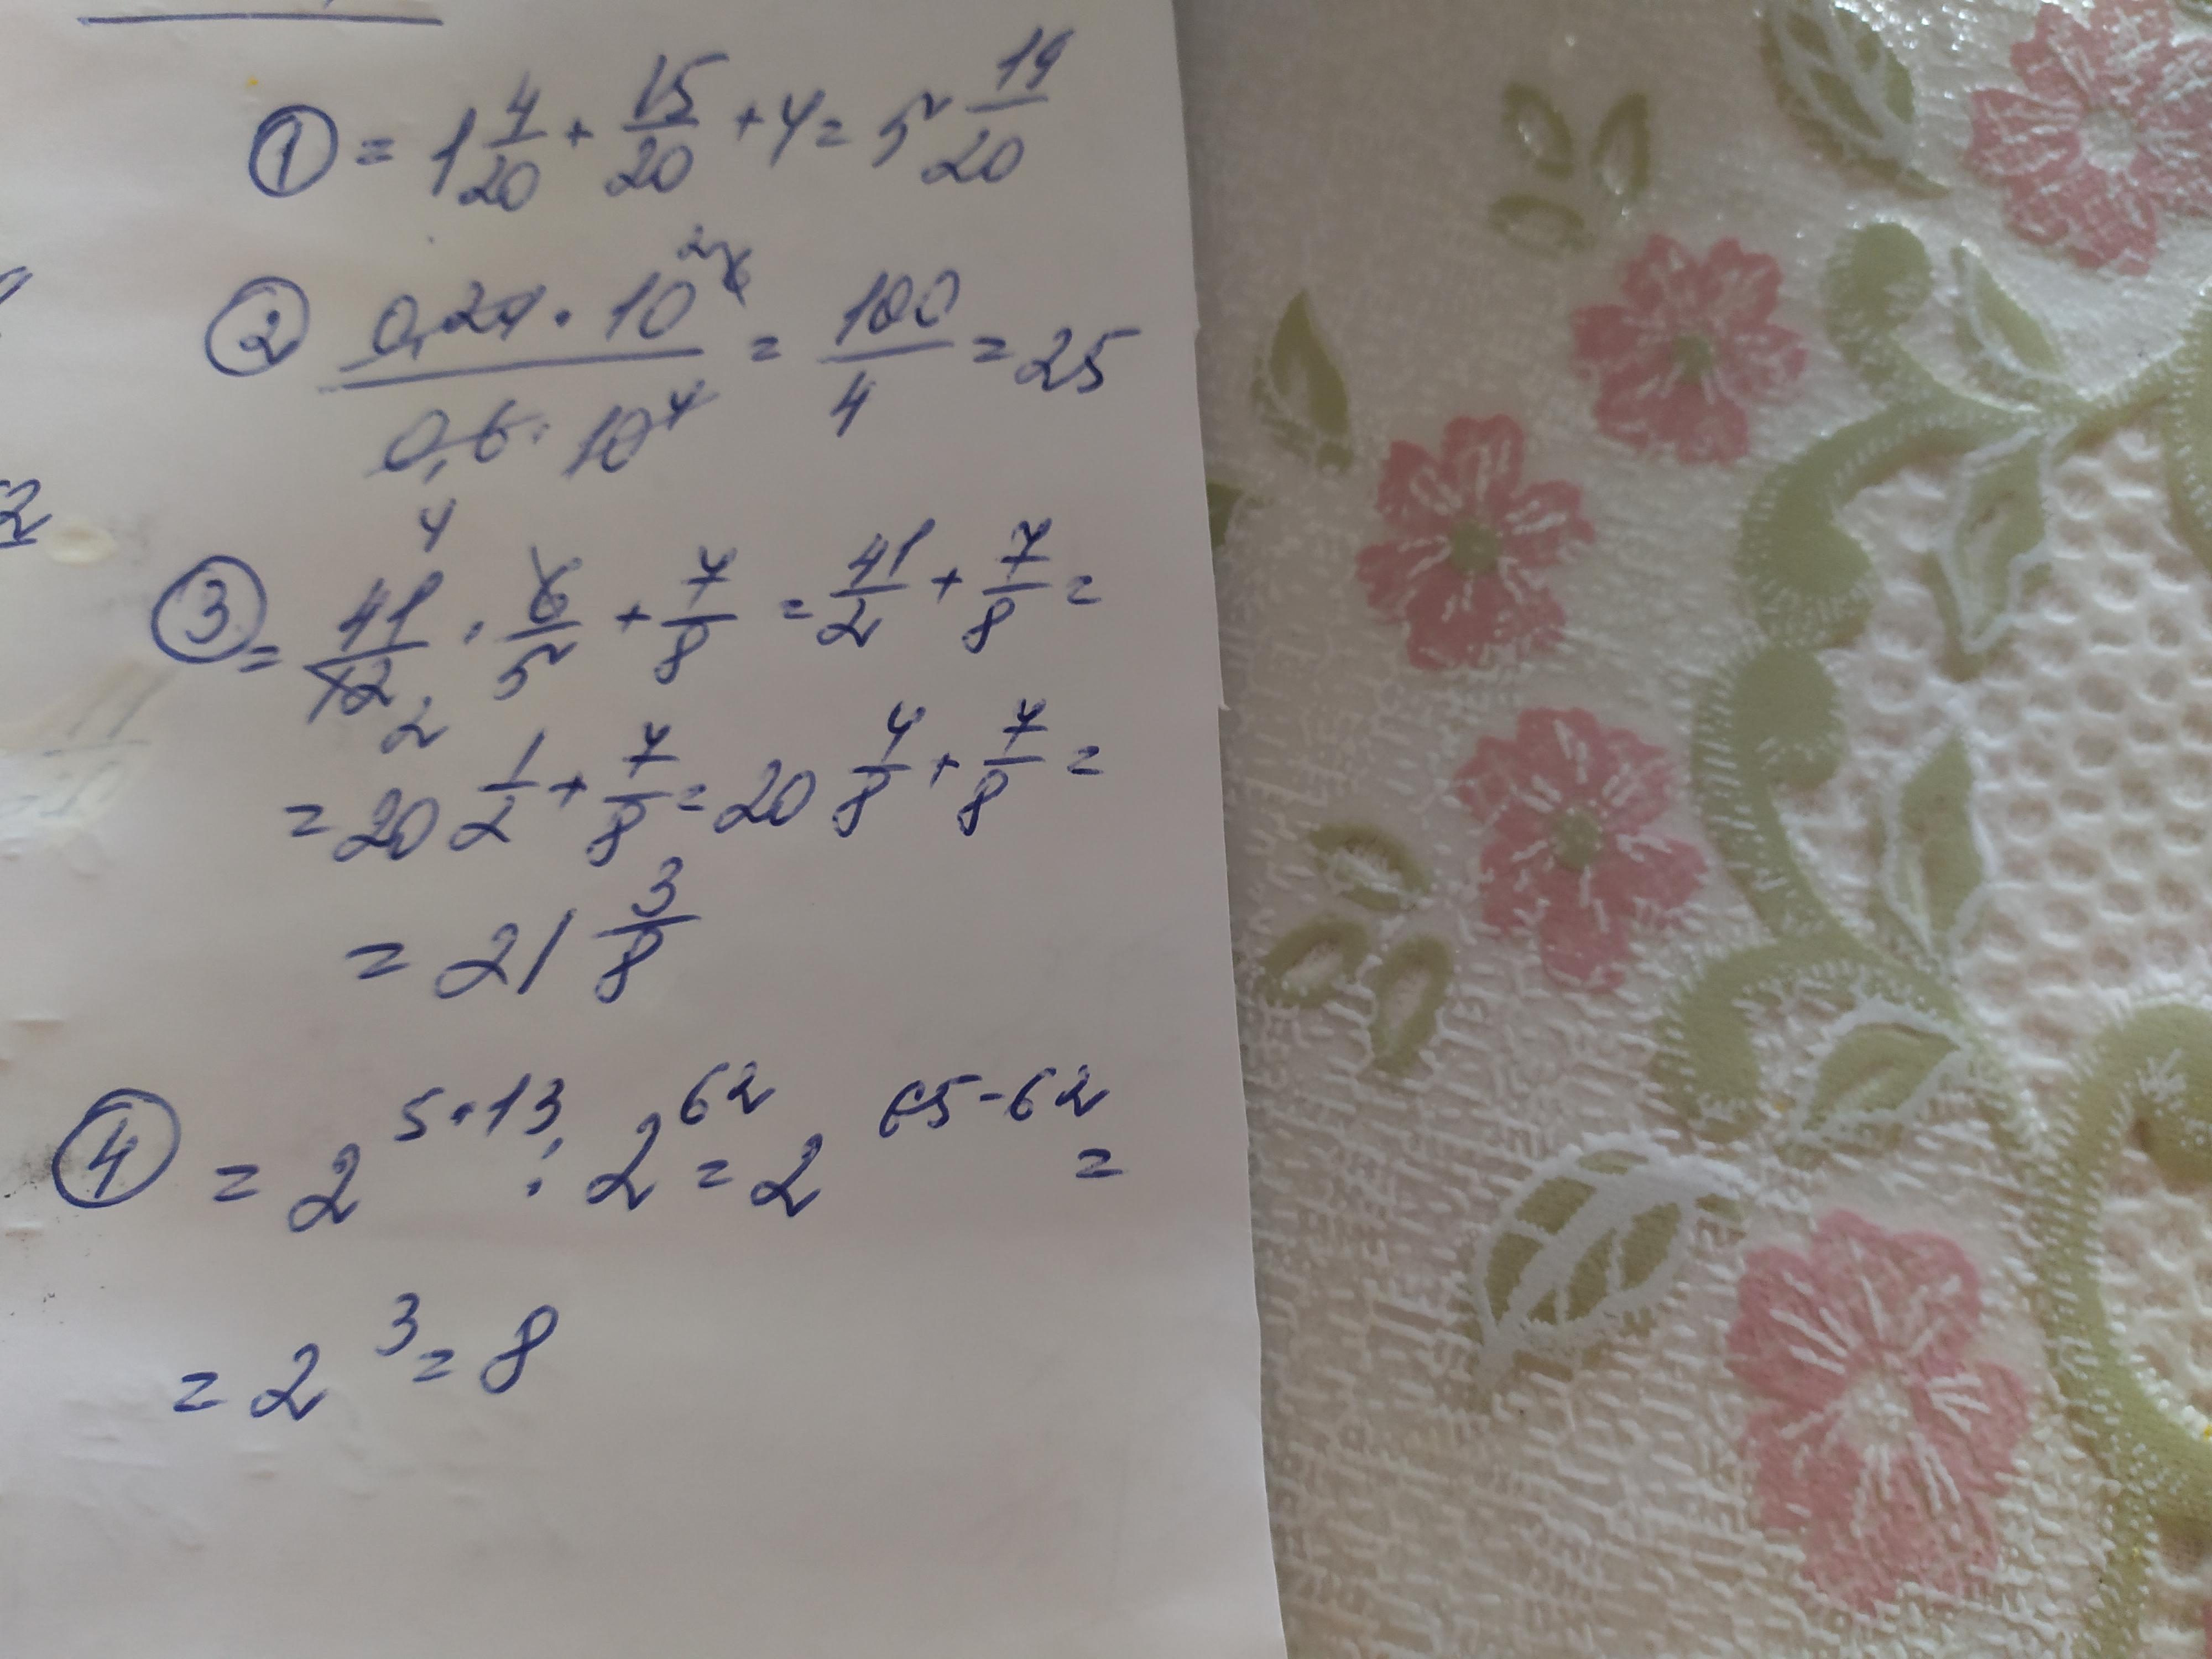 ① = 1 4/20 + 15/20 + 4 = 5 19/20
② 0,24 · 10^6 / 0,6 · 10^4 = 100/4 = 25
2
4
③ = 41/12 · 6/5 + 7/8 = 41/2 + 7/8 =
2
= 20 1/2 + 7/8 = 20 4/8 + 7/8 =
= 21 3/8
④ = 2^5·13 : 2^62 = 2^65-62 =
= 2^3 = 8